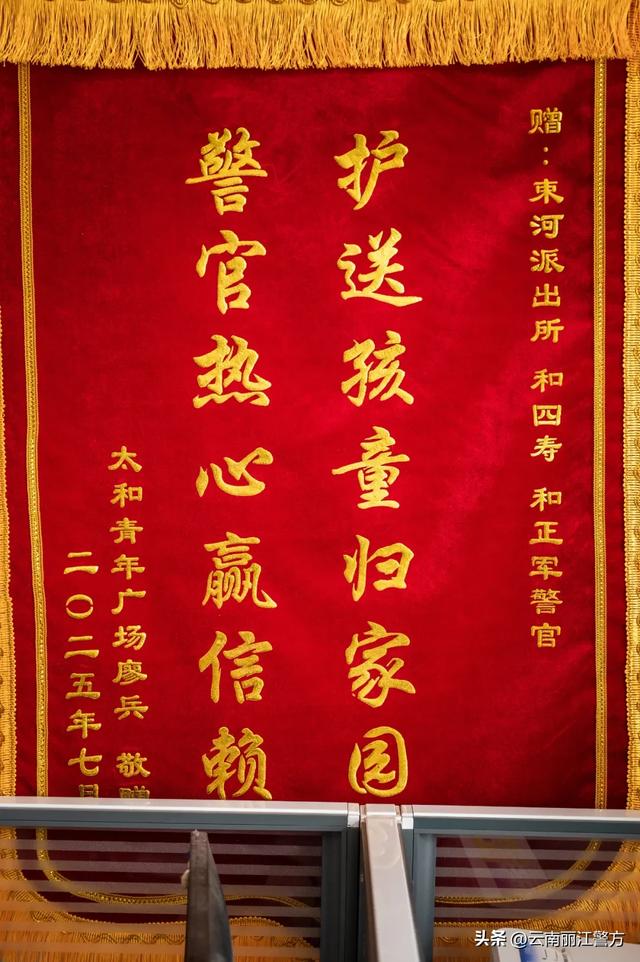 赠：束河派出所 和四寿 和正军警官
护送孩童归家园
警官热心赢信赖
太和青年广场廖兵 敬赠
二〇二五年七月
头条 @云南丽江警方